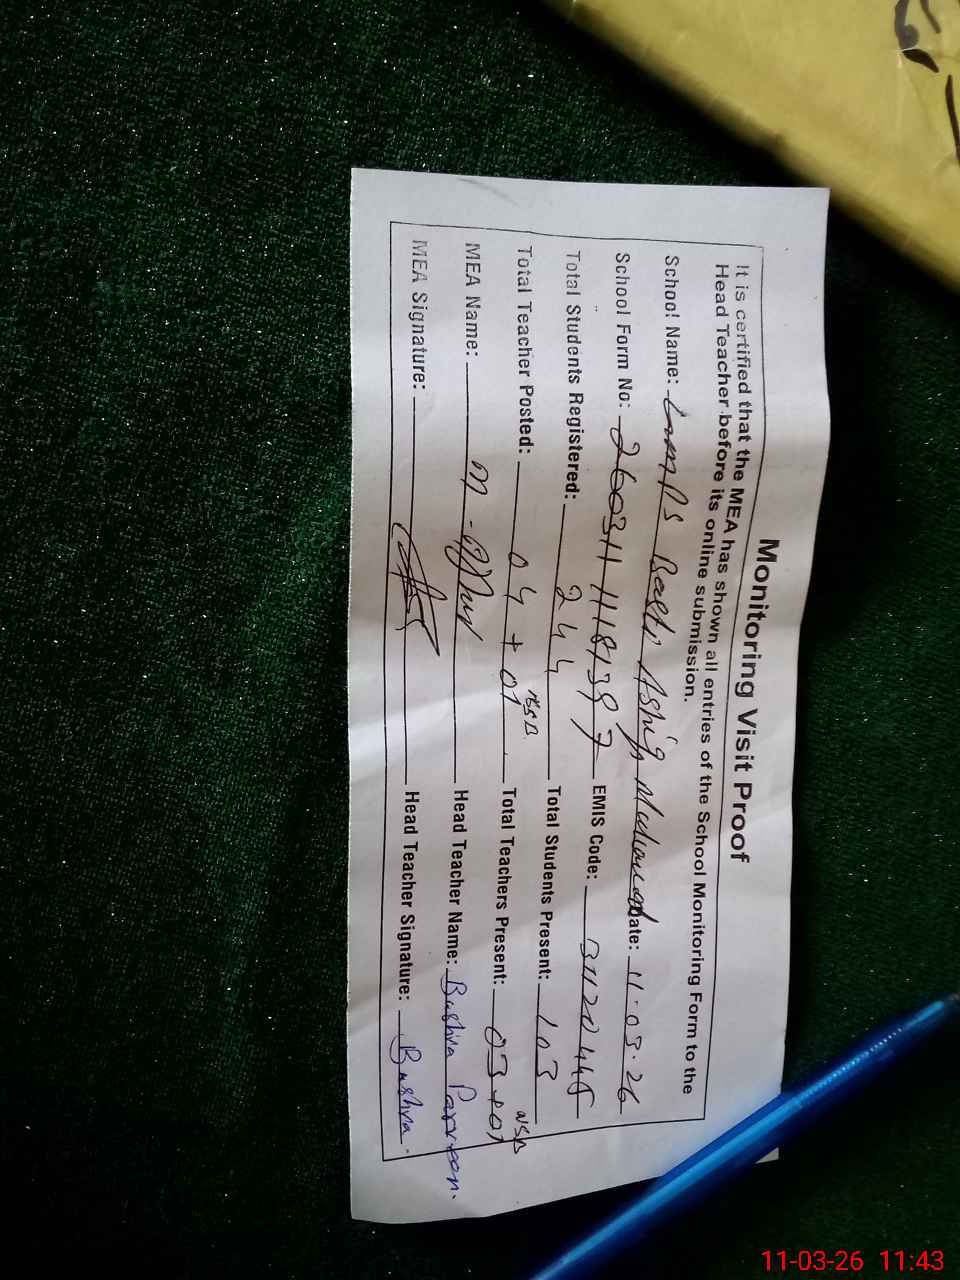 Monitoring Visit Proof
It is certified that the MEA has shown all entries of the School Monitoring Form to the
Head Teacher before its online submission.
School Name: Basti Ashiq Date: 11.03.26
School Form No: EMIS Code:
Total Students Registered: 244 Total Students Present: 103
Total Teacher Posted: 04 + 01 Total Teachers Present: 03 + 01
MEA Name: M. Head Teacher Name: Bushra Parveen.
MEA Signature: Head Teacher Signature: Bushra.
11-03-26 11:43